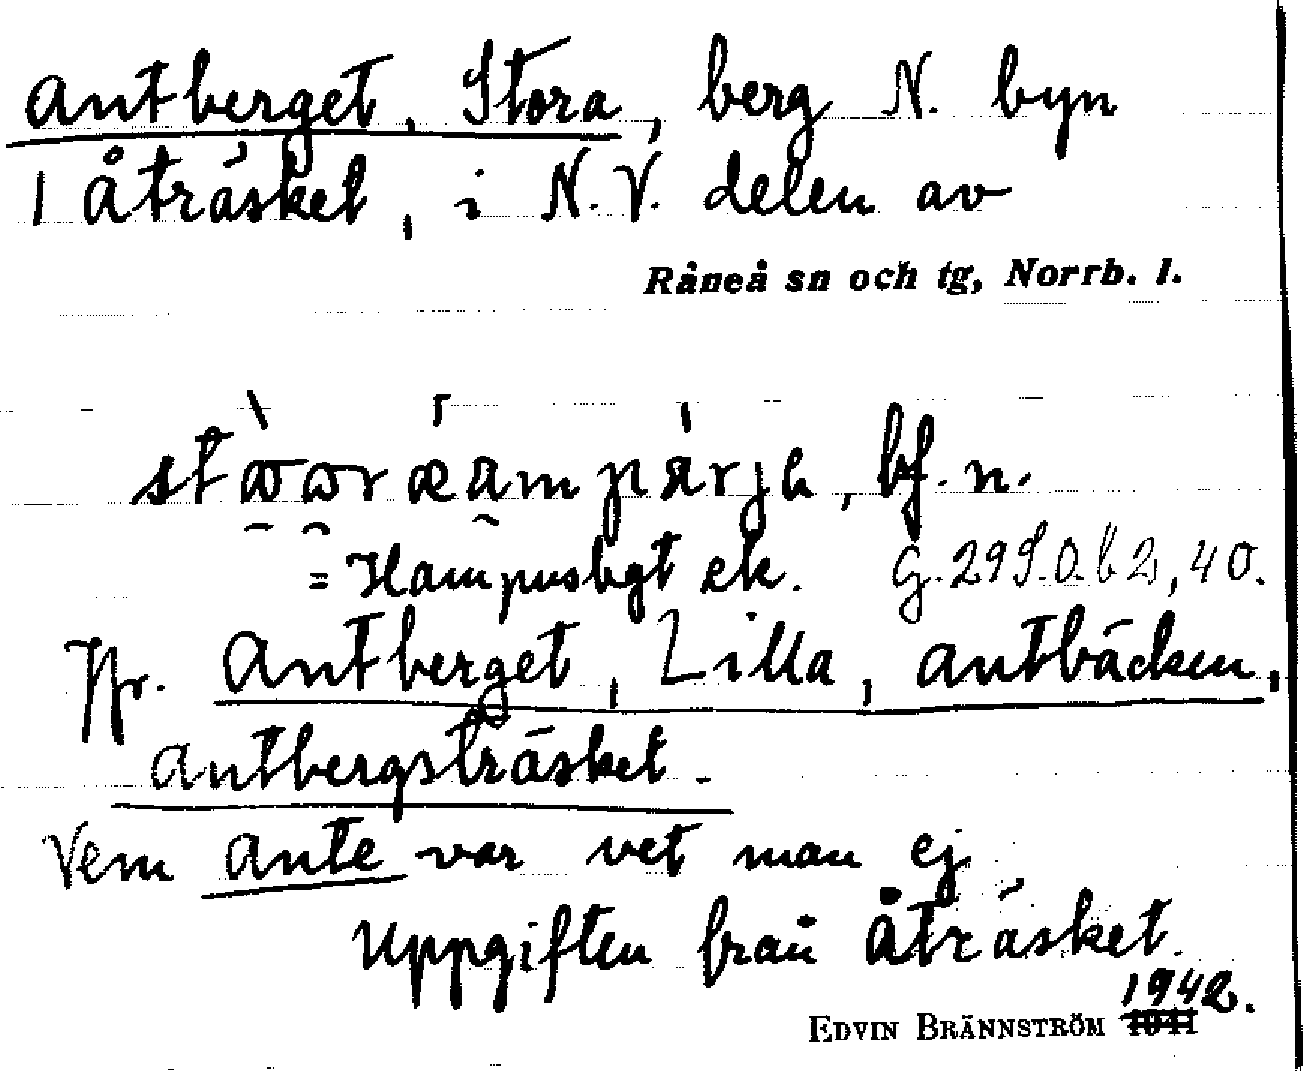 Antberget, Stora, berg N. byn
i Åträsket, i N.V. delen av
Råneå sn och tg, Norrb. l.
bf. n.
= Hampusbgt ek. G. 299.0.b 2, 40.
Jfr. Antberget, Lilla, Antbäcken,
Antbergsträsket.
Vem Ante var vet man ej
Uppgiften från Åträsket.
1942.
EDVIN BRÄNNSTRÖM 1941